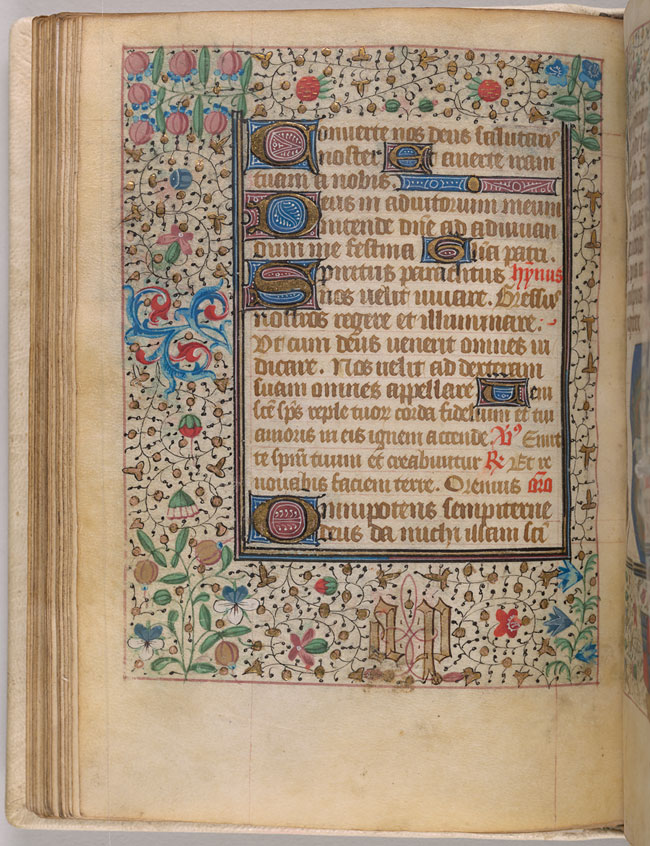 Converte nos deus salutaris
noster Et averte iram
tuam a nobis
Deus in adiutorium meum
intende dñe ad adiuvan
dum me festina Glia patri.
Spiritus paraclitus hỹnus
nos velit iuvare. Gressus
nostros regere et illuminare.
Ut cum deus venerit omnes iu
dicare. Nos velit ad dexteram
suam omnes appellare Veni
scẽ sp̃s reple tuor corda fidelium et tui
amoris in eis ignem accende V̊ Emit
te spm̃ tuum et creabuntur R̷ Et re
novabis faciem terre. Oremus or̃o
Omnipotens sempiterne
deus da michi illam sc̃i